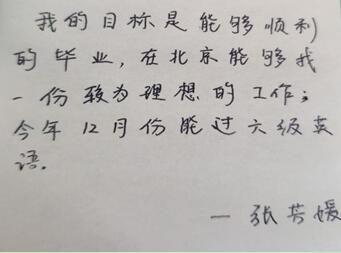 我的目标是能够顺利
的毕业，在北京能够找
一份较为理想的工作；
今年12月份能过六级英
语。
— 张芳媛